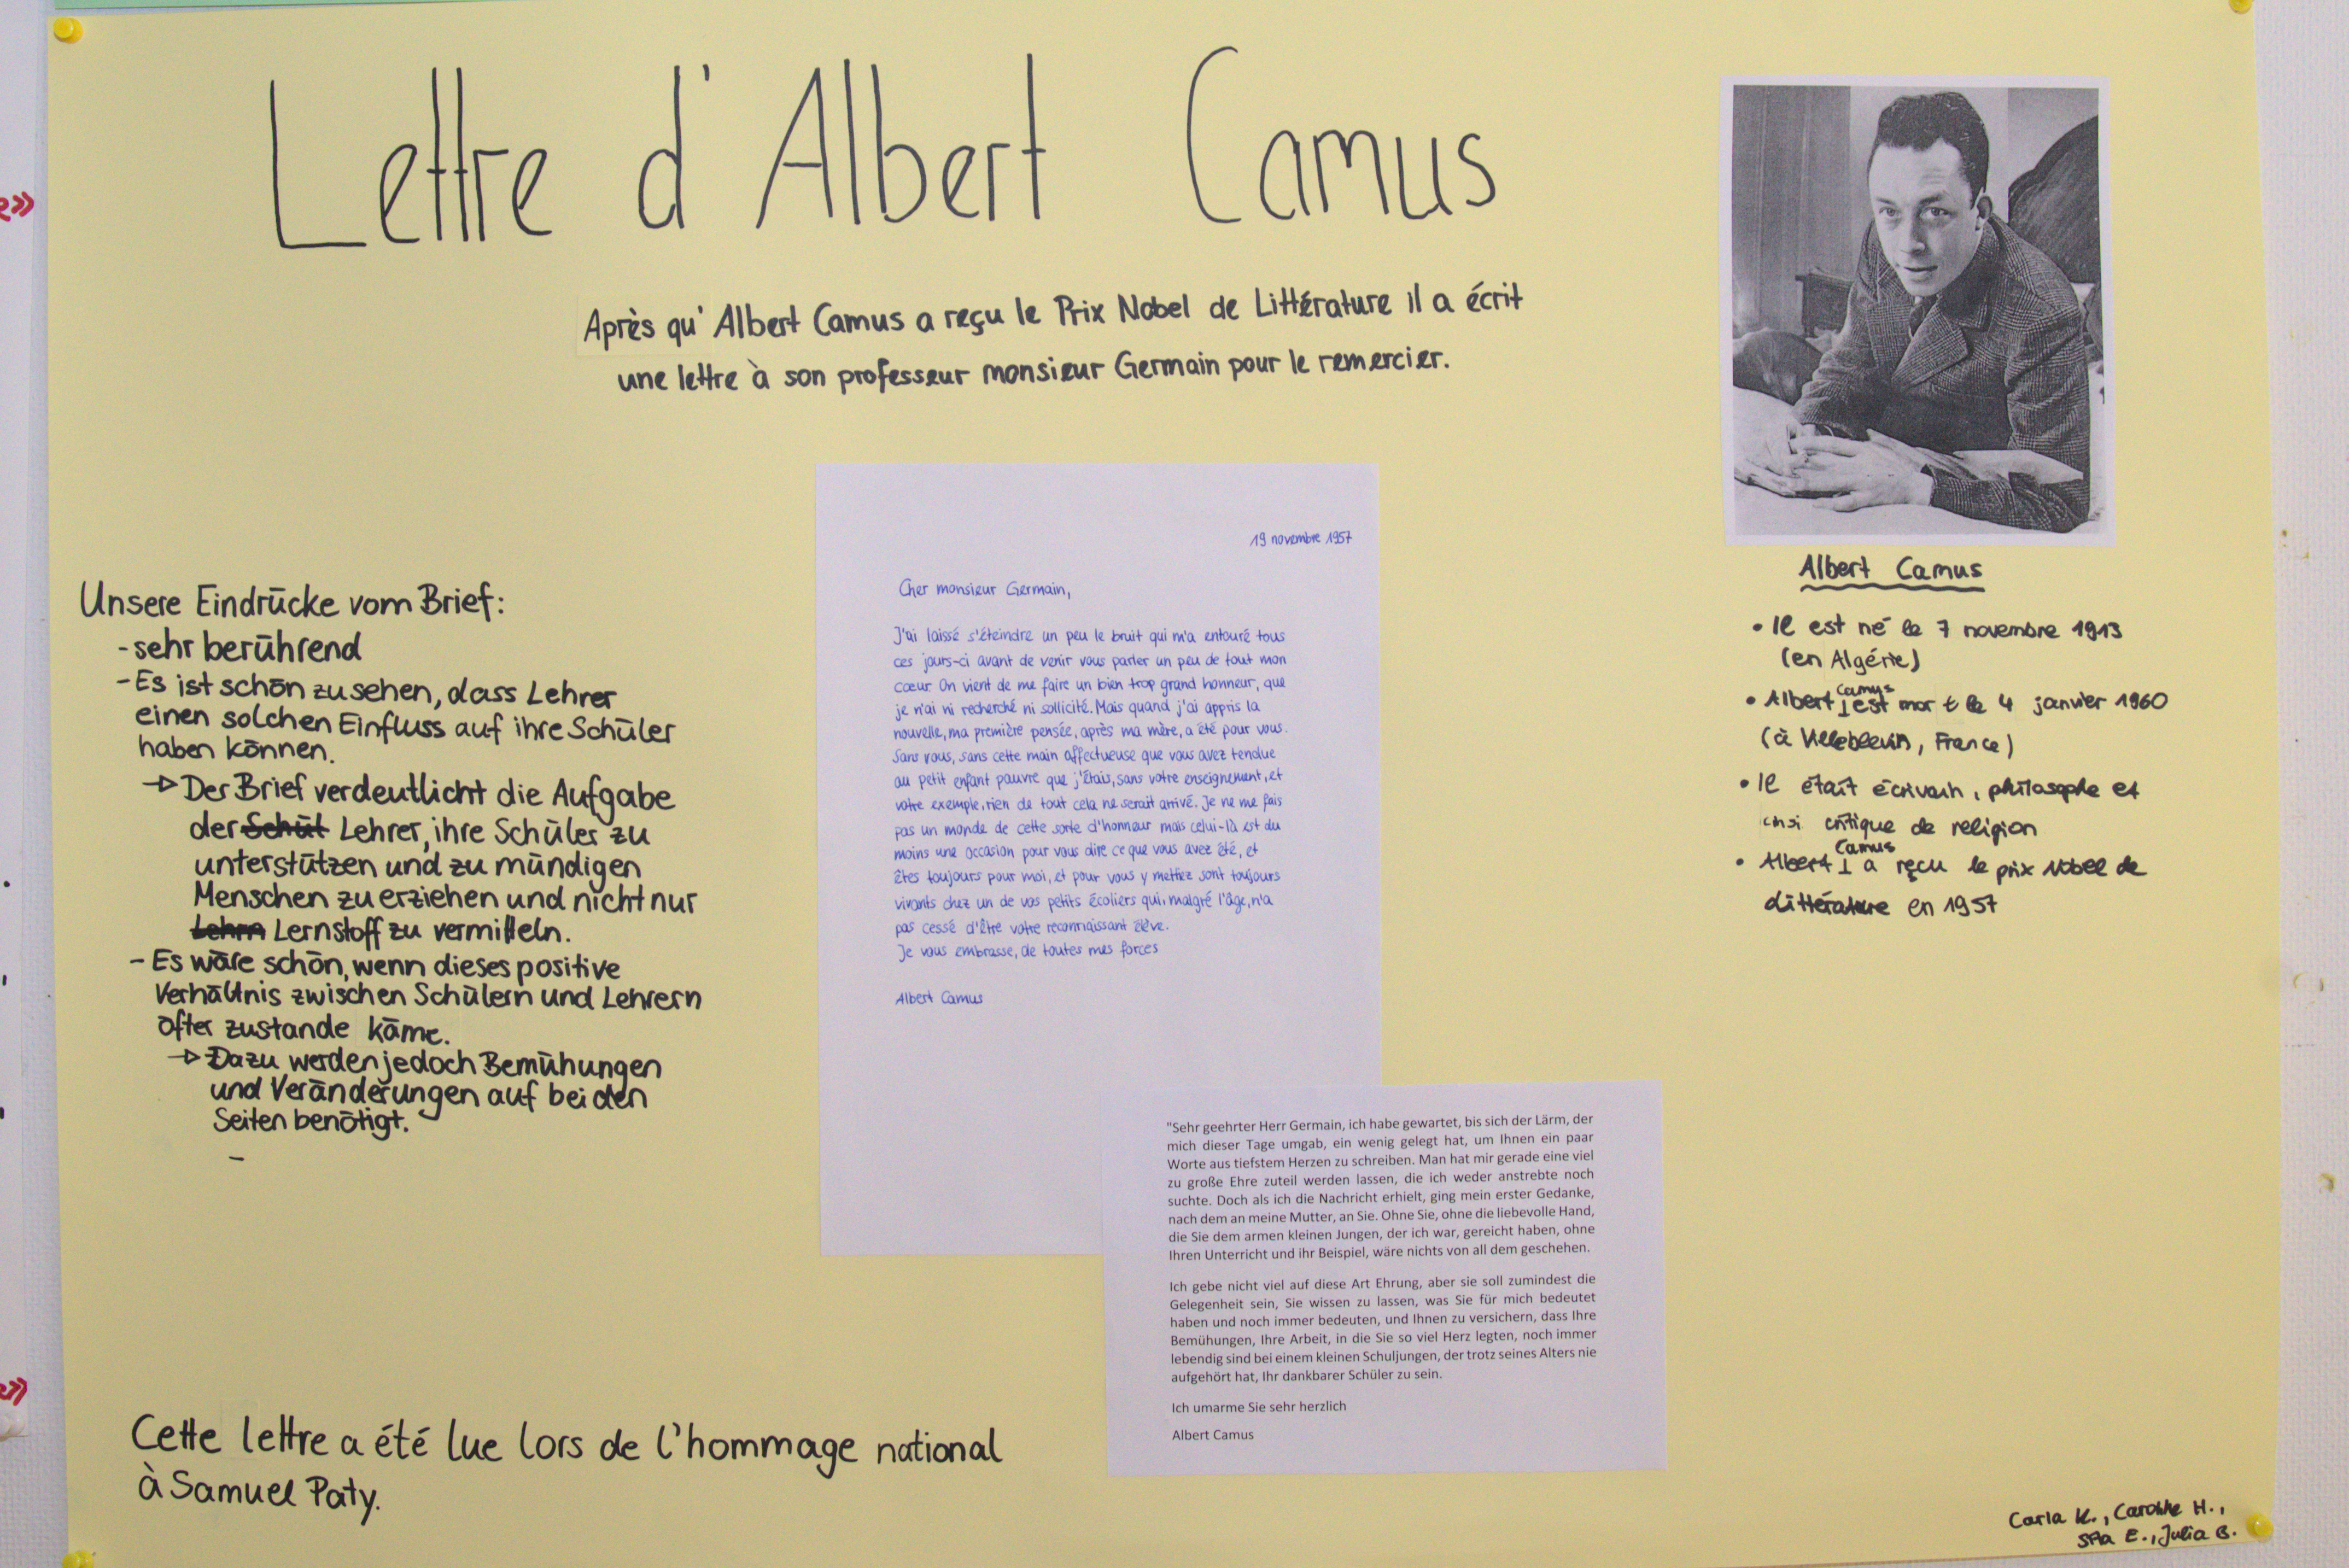 Lettre d'Albert Camus
Après qu'Albert Camus a reçu le Prix Nobel de Littérature il a écrit
une lettre à son professeur monsieur Germain pour le remercier.
Unsere Eindrücke vom Brief:
- sehr berührend
- Es ist schön zu sehen, dass Lehrer
einen solchen Einfluss auf ihre Schüler
haben können.
→ Der Brief verdeutlicht die Aufgabe
der Schül Lehrer, ihre Schüler zu
unterstützen und zu mündigen
Menschen zu erziehen und nicht nur
Lehrn Lernstoff zu vermitteln.
- Es wäre schön, wenn dieses positive
Verhältnis zwischen Schülern und Lehrern
öfter zustande käme.
→ Dazu werden jedoch Bemühungen
und Veränderungen auf beiden
Seiten benötigt.
-
Cette lettre a été lue lors de l'hommage national
à Samuel Paty.
19 novembre 1957
Cher monsieur Germain,
J'ai laissé s'éteindre un peu le bruit qui m'a entouré tous
ces jours-ci avant de venir vous parler un peu de tout mon
cœur. On vient de me faire un bien trop grand honneur, que
je n'ai ni recherché ni sollicité. Mais quand j'ai appris la
nouvelle, ma première pensée, après ma mère, a été pour vous.
Sans vous, sans cette main affectueuse que vous avez tendue
au petit enfant pauvre que j'étais, sans votre enseignement, et
votre exemple, rien de tout cela ne serait arrivé. Je ne me fais
pas un monde de cette sorte d'honneur mais celui-là est du
moins une occasion pour vous dire ce que vous avez été, et
êtes toujours pour moi, et pour vous y mettiez sont toujours
vivants chez un de vos petits écoliers qui, malgré l'âge, n'a
pas cessé d'être votre reconnaissant élève.
Je vous embrasse, de toutes mes forces
Albert Camus
"Sehr geehrter Herr Germain, ich habe gewartet, bis sich der Lärm, der
mich dieser Tage umgab, ein wenig gelegt hat, um Ihnen ein paar
Worte aus tiefstem Herzen zu schreiben. Man hat mir gerade eine viel
zu große Ehre zuteil werden lassen, die ich weder anstrebte noch
suchte. Doch als ich die Nachricht erhielt, ging mein erster Gedanke,
nach dem an meine Mutter, an Sie. Ohne Sie, ohne die liebevolle Hand,
die Sie dem armen kleinen Jungen, der ich war, gereicht haben, ohne
Ihren Unterricht und ihr Beispiel, wäre nichts von all dem geschehen.
Ich gebe nicht viel auf diese Art Ehrung, aber sie soll zumindest die
Gelegenheit sein, Sie wissen zu lassen, was Sie für mich bedeutet
haben und noch immer bedeuten, und Ihnen zu versichern, dass Ihre
Bemühungen, Ihre Arbeit, in die Sie so viel Herz legten, noch immer
lebendig sind bei einem kleinen Schuljungen, der trotz seines Alters nie
aufgehört hat, Ihr dankbarer Schüler zu sein.
Ich umarme Sie sehr herzlich
Albert Camus
Albert Camus
• Il est né le 7 novembre 1913
(en Algérie)
• Albert Camus est mort le 4 janvier 1960
(à Villeblevin, France)
• Il était écrivain, philosophe et
critique de religion
• Albert Camus a reçu le prix Nobel de
Littérature en 1957
Carla K., Caroline H.,
E., Julia B.